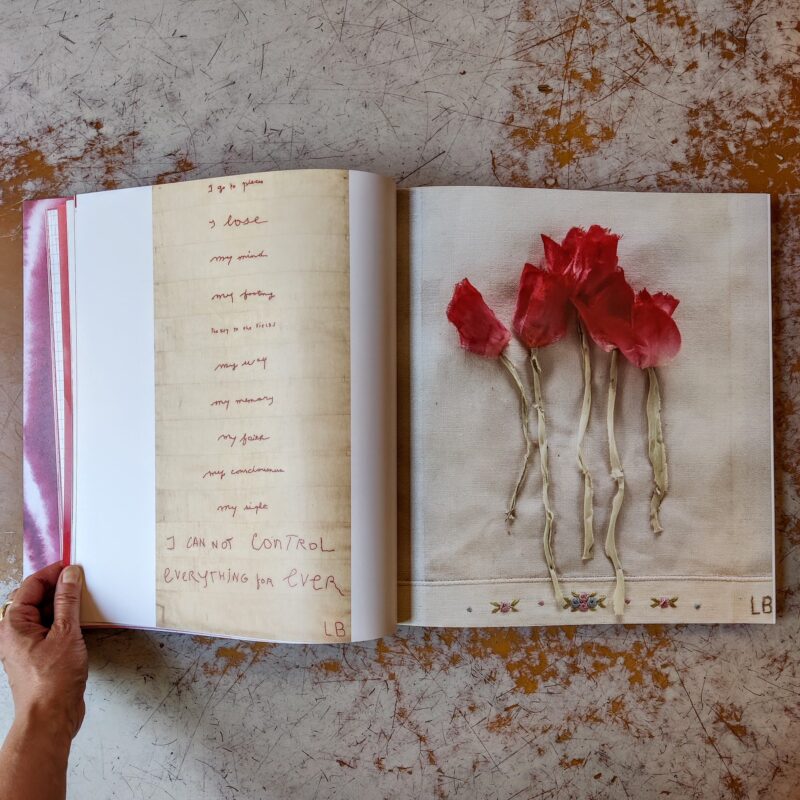 I go to places
I lose
my mind
my footing
the key to the fields
my way
my memory
my faith
my consciousness
my sight
I CAN NOT CONTROL
EVERYTHING for EVER
LB
LB